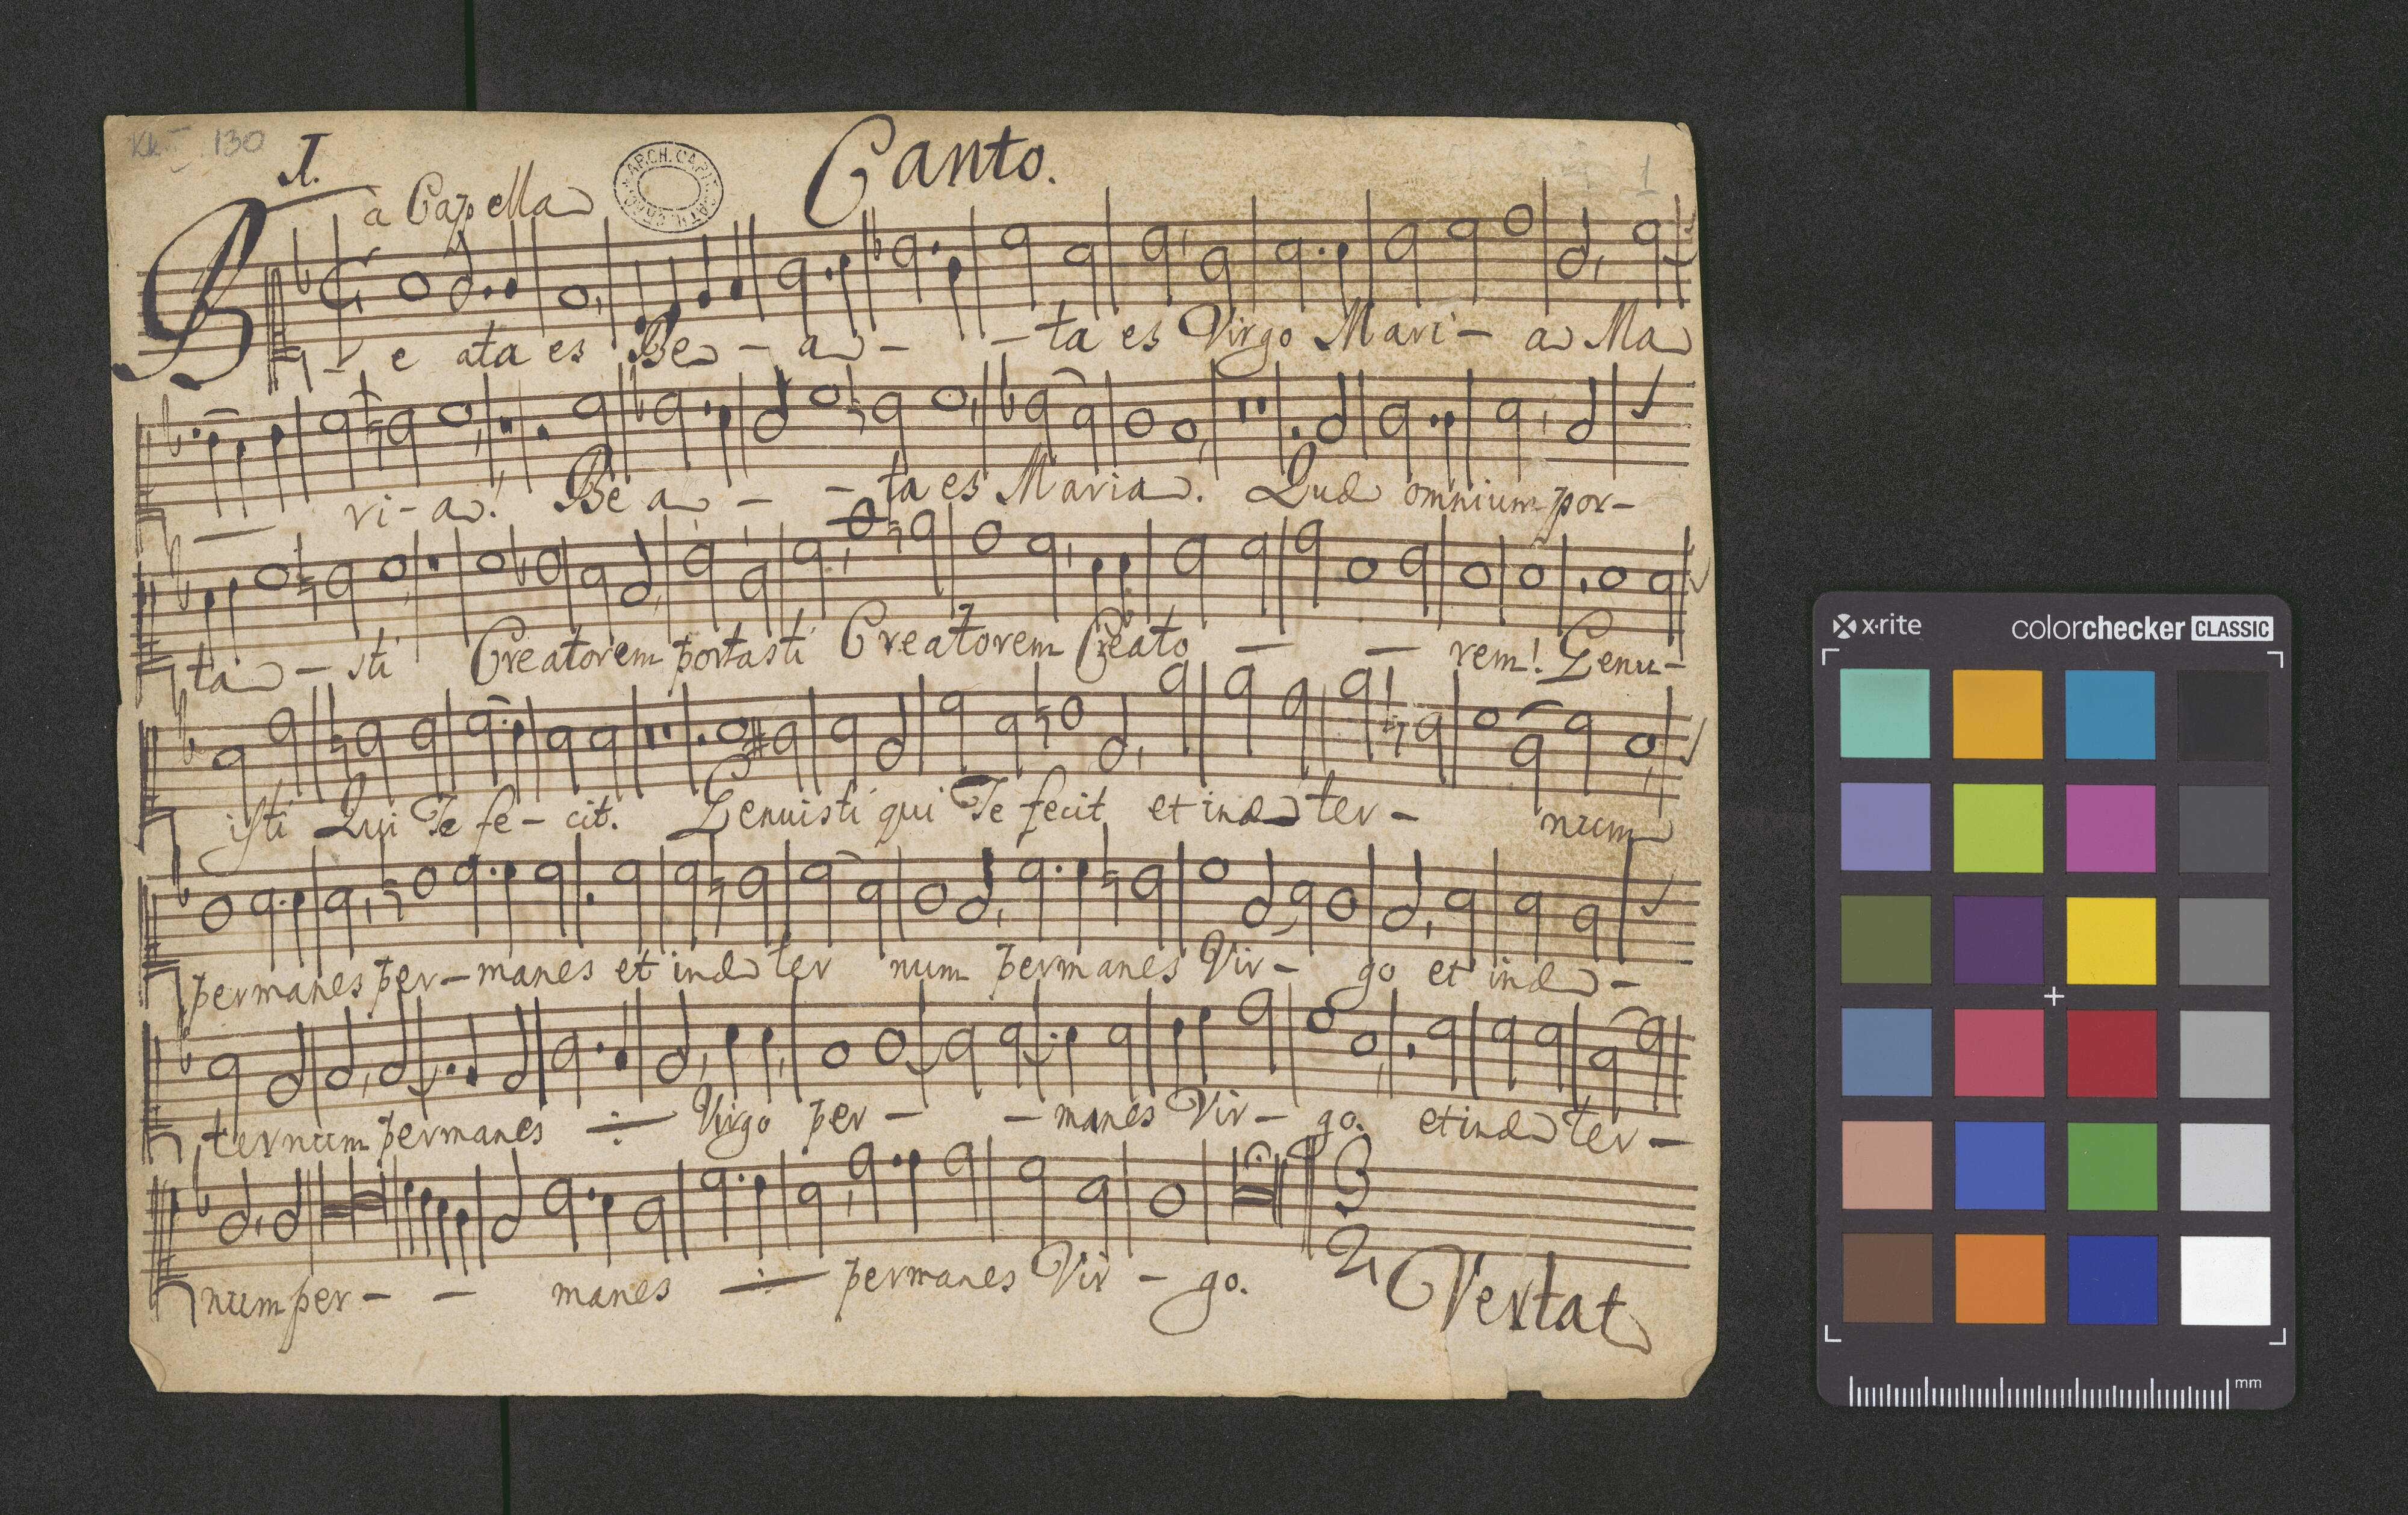 130
1
I.
Canto.
à Capella
ARCH. CAPIT.
Be ata es Be - a - - ta es Virgo Mari - a Ma
ri - a! Be a - - ta es Maria. Quæ omnium por -
ta - sti Creatorem portasti Creatorem Creato - - rem! Genu -
isti Qui Te fe - cit. Genuisti qui Te fecit et in æ ter - num
permanes per - manes et in æ ter num permanes Vir - go et in æ -
ternum permanes ·/· Virgo per - - manes Vir - go. et in æ ter -
num per - - manes ·/· permanes Vir - go.
3
2
Vertat
x-rite
colorchecker CLASSIC
mm